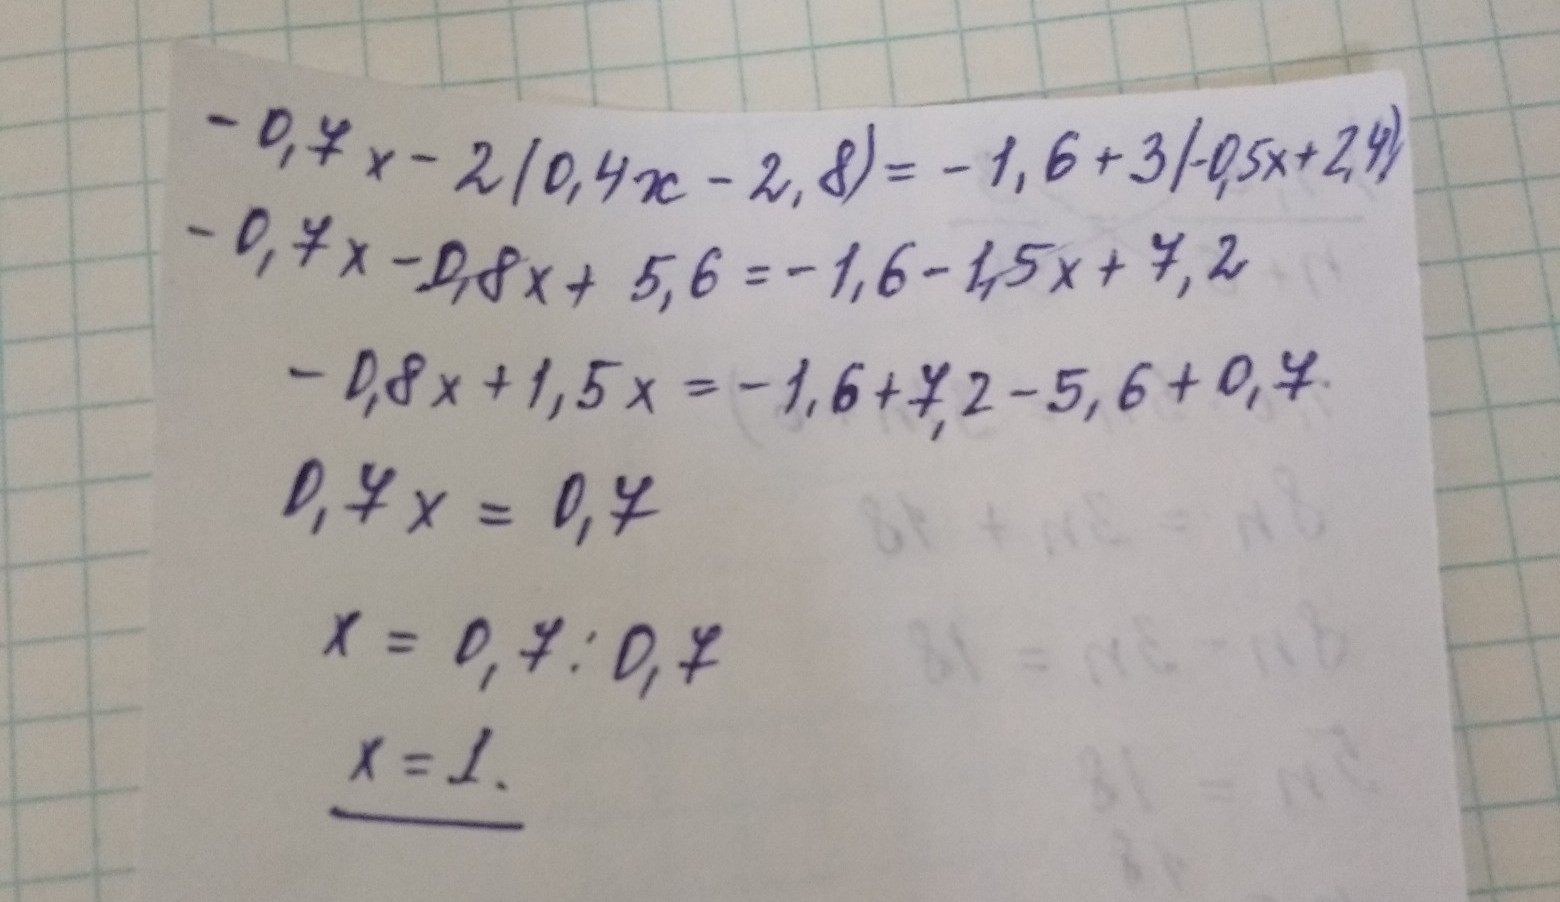 -0,7x-2(0,4x-2,8)=-1,6+3(-0,5x+2,4)
-0,7x-0,8x+5,6=-1,6-1,5x+7,2
-0,8x+1,5x=-1,6+7,2-5,6+0,7
0,7x=0,7
x=0,7:0,7
x=1.